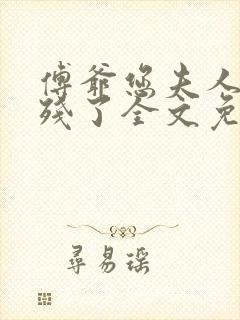 傅爷您夫人
残了全文免
尋易瑶